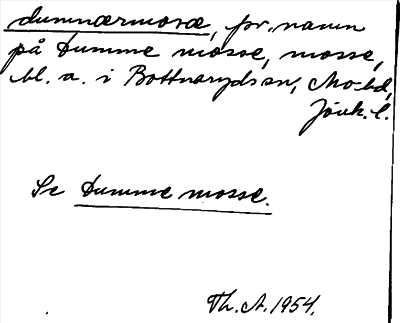 dumnærmosæ, pr. namn
på Dumme mosse, mosse,
bl. a. i Bottnaryds sn, Mo hd,
Jönk. l.
Se Dumme mosse.
Th. A. 1954.